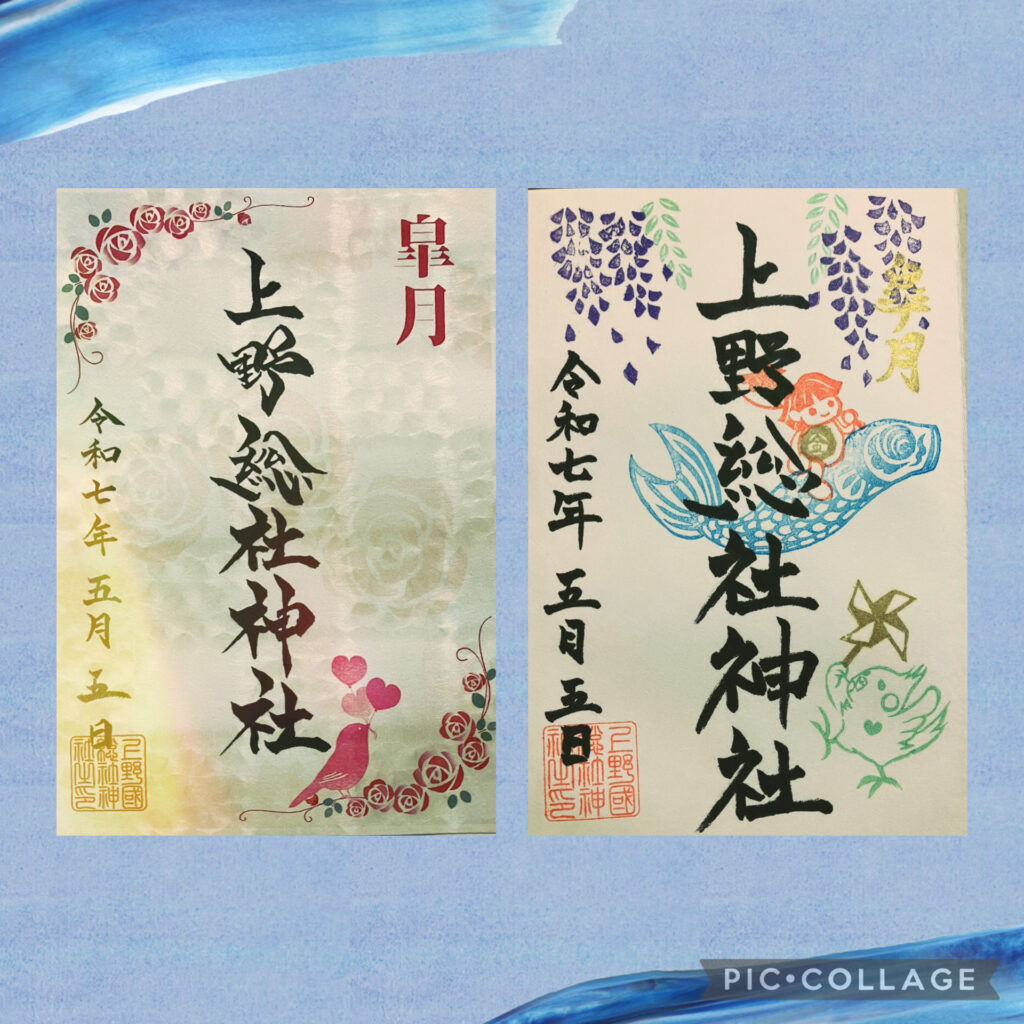 皐月
上野総社神社
令和七年 五月 五日
上野國
総社神
社之印
皐月
上野総社神社
令和七年 五月五日
上野國
総社神
社之印
金
PIC•COLLAGE